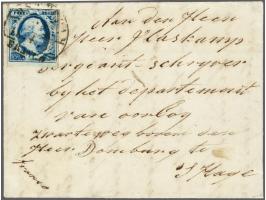 Aan den Heer
Heer Flaskamp
Sergeant-schryver
by het departement
van oorlog
Zwarteweg boven den
Heer Domburg te
S'Hage
franco